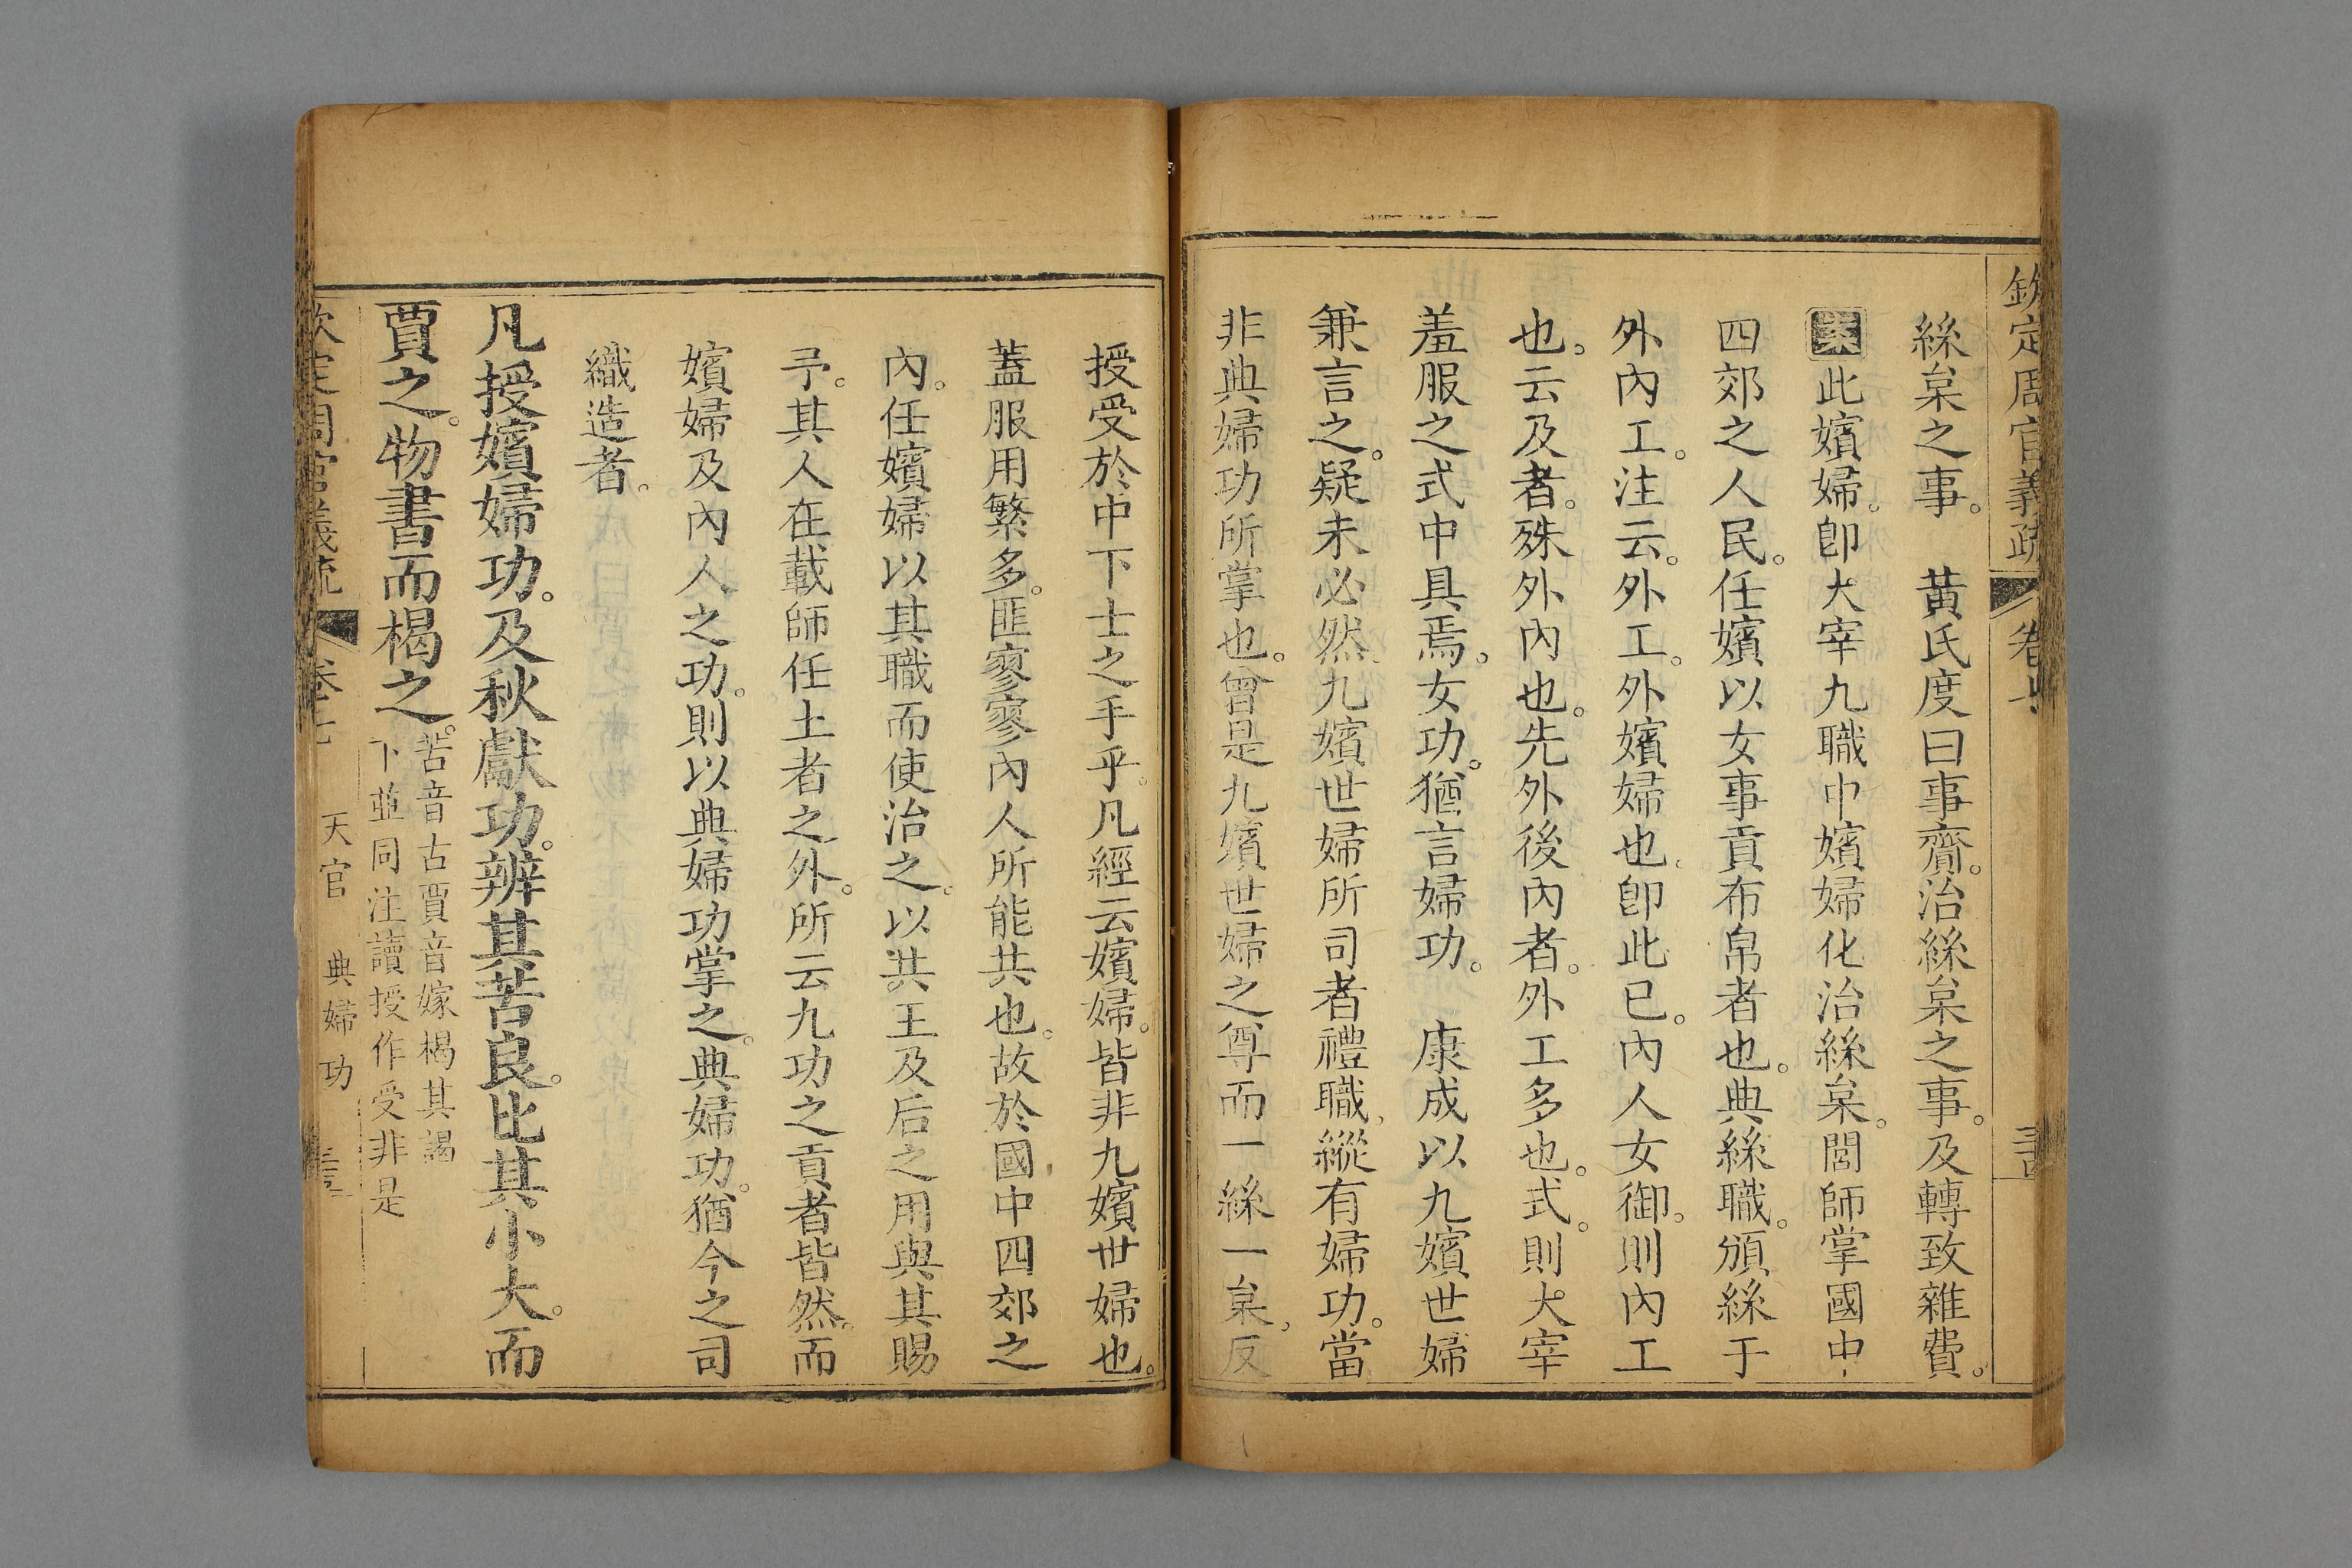 欽定周官義疏 卷七
絲枲之事。 黃氏度曰事齎。治絲枲之事。及轉致雜費。
案此嬪婦。卽大宰九職中嬪婦化治絲枲。閭師掌國中
四郊之人民。任嬪以女事貢布帛者也。典絲職。頒絲于
外內工。注云。外工。外嬪婦也。卽此已。內人女御。則內工
也。云及者。殊外內也。先外後內者。外工多也。式。則大宰
羞服之式中具焉。女功。猶言婦功。 康成以九嬪世婦
兼言之。疑未必然。九嬪世婦所司者禮職。縱有婦功。當
非典婦功所掌也。曾是九嬪世婦之尊而一絲一枲。反
授受於中下士之手乎。凡經云嬪婦。皆非九嬪世婦也。
蓋服用繁多。匪寥寥內人所能共也。故於國中四郊之
內。任嬪婦以其職而使治之。以共王及后之用與其賜
予。其人在載師任土者之外。所云九功之貢者皆然。而
嬪婦及內人之功。則以典婦功掌之。典婦功。猶今之司
織造者。
凡授嬪婦功。及秋獻功。辨其苦良。比其小大。而
賈之。物書而楬之。
苦音古賈音嫁楬其謁
下並同注讀授作受非是
欽定周官義疏 卷七 天官 典婦功